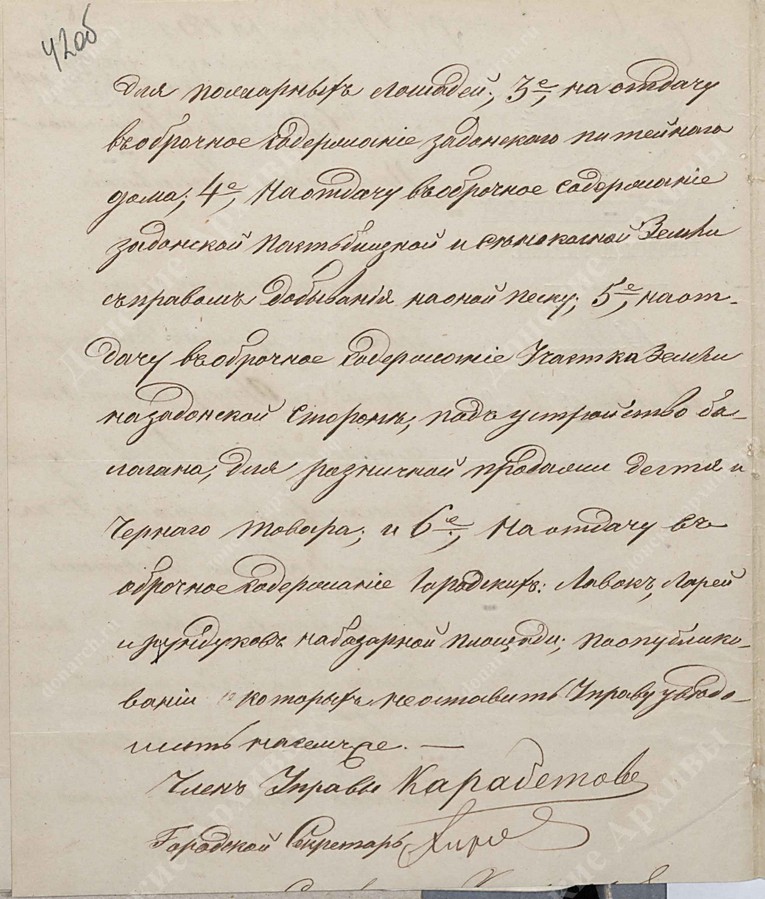 42об
для пожарныхъ лошадей; 3е, на отдачу
въ оброчное содержаніе задонскаго питейнаго
дома; 4е, на отдачу въ оброчное содержаніе
задонской пастьбищной и сѣнокосной земли
съ правомъ добыванія на оной песку; 5е, на от-
дачу въ оброчное содержаніе участка земли
на задонской сторонѣ, подъ устройство ба-
лагана, для розничной продажи дегтя и
чернаго товара; и 6е, на отдачу въ
оброчное содержаніе городскихъ: лавокъ, ларей
и рундуковъ на базарной площади; по опублико-
ваніи которыхъ не оставить Управу увѣдо-
мить
Членъ Управы Карабетовъ
Городской Секретарь